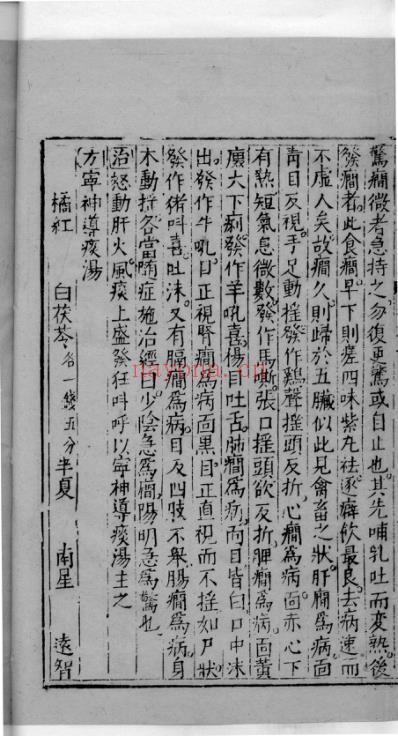 驚癇微者急持之勿復更驚或自止也其先哺乳吐而变熱後
發癇者此食癇早下則瘥四味紫丸袪逐癖飲最良去病速而
不虛人矣故癇久則歸於五臟似此見禽畜之狀肝癇為病面
青目反視手足動搖發作鷄聲摇頭反折心癇為病面赤心下
有熱短氣息微數發作馬嘶張口摇頭欲反折脾癇為病面黄
腹大下痢發作羊吼喜揚目吐舌肺癇為病面目皆白口中沫
出發作牛吼目正視腎癇為病面黒目正直視而不摇如尸狀
發作猪叫喜吐沫又有膈癇為病目反四肢不舉腸癇為病身
木動揺各當隨症施治經曰少陰急為癇陽明急為驚也
治怒動肝火風痰上盛發狂叫呼以寧神導痰湯主之
方寧神導痰湯
橘紅 白茯苓各一錢五分 半夏 南星 遠智
nayona.cn